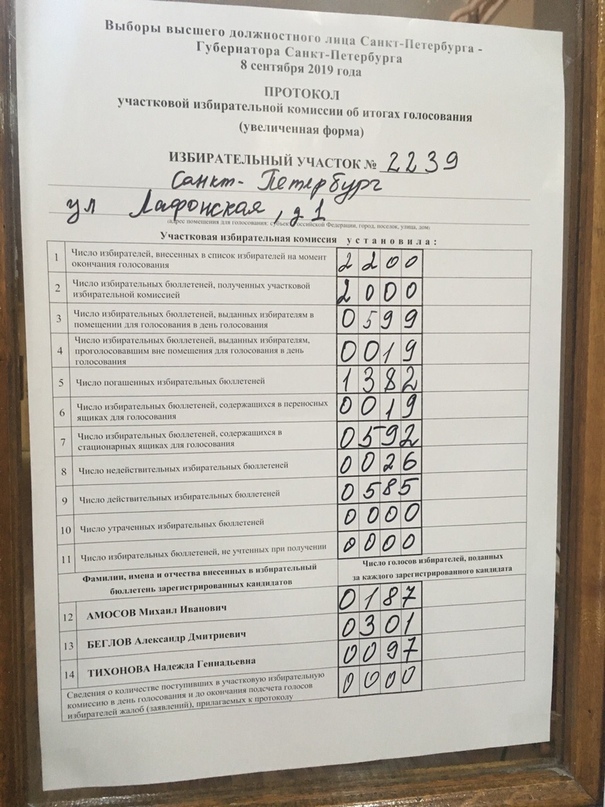 Выборы высшего должностного лица Санкт-Петербурга -
Губернатора Санкт-Петербурга
8 сентября 2019 года
ПРОТОКОЛ
участковой избирательной комиссии об итогах голосования
(увеличенная форма)
ИЗБИРАТЕЛЬНЫЙ УЧАСТОК № 2239
Санкт-Петербург
ул Лафонская, д 1
адрес помещения для голосования: субъект Российской Федерации, город, поселок, улица, дом
Участковая избирательная комиссия установила:
1 Число избирателей, внесенных в список избирателей на момент 2200
окончания голосования
2 Число избирательных бюллетеней, полученных участковой 2000
избирательной комиссией
3 Число избирательных бюллетеней, выданных избирателям в 0599
помещении для голосования в день голосования
4 Число избирательных бюллетеней, выданных избирателям, 0019
проголосовавшим вне помещения для голосования в день
голосования
5 Число погашенных избирательных бюллетеней 1382
6 Число избирательных бюллетеней, содержащихся в переносных 0019
ящиках для голосования
7 Число избирательных бюллетеней, содержащихся в 0592
стационарных ящиках для голосования
8 Число недействительных избирательных бюллетеней 0026
9 Число действительных избирательных бюллетеней 0585
10 Число утраченных избирательных бюллетеней 0000
11 Число избирательных бюллетеней, не учтенных при получении 0000
Фамилии, имена и отчества внесенных в избирательный
бюллетень зарегистрированных кандидатов
Число голосов избирателей, поданных
за каждого зарегистрированного кандидата
12 АМОСОВ Михаил Иванович 0187
13 БЕГЛОВ Александр Дмитриевич 0301
14 ТИХОНОВА Надежда Геннадьевна 0097
Сведения о количестве поступивших в участковую избирательную 0000
комиссию в день голосования и до окончания подсчета голосов
избирателей жалоб (заявлений), прилагаемых к протоколу